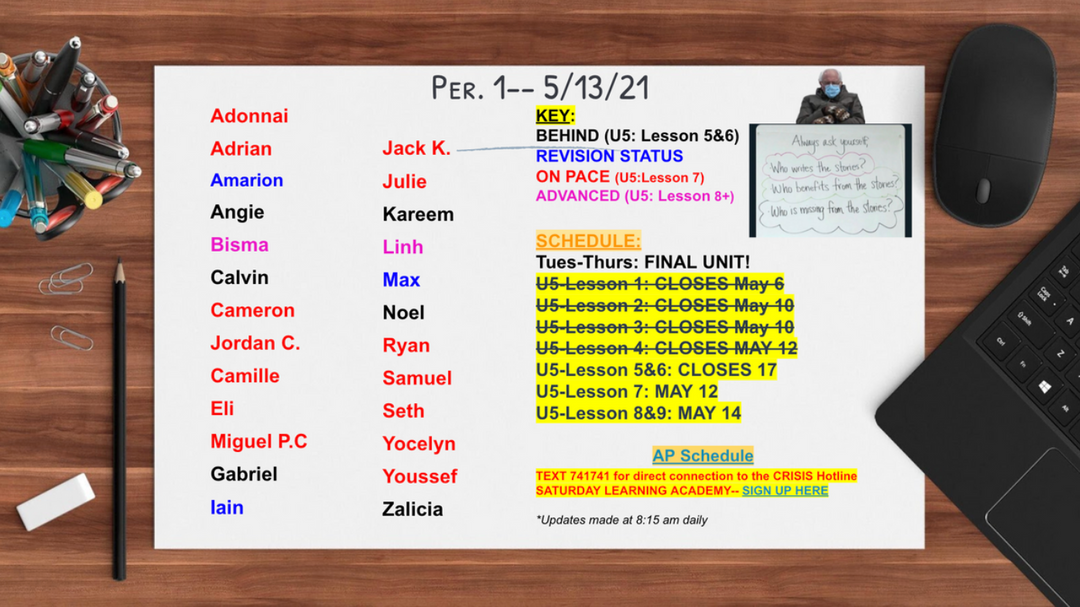 PER. 1-- 5/13/21
Adonnai
Adrian
Amarion
Angie
Bisma
Calvin
Cameron
Jordan C.
Camille
Eli
Miguel P.C
Gabriel
Iain
Jack K.
Julie
Kareem
Linh
Max
Noel
Ryan
Samuel
Seth
Yocelyn
Youssef
Zalicia
KEY:
BEHIND (U5: Lesson 5&6)
REVISION STATUS
ON PACE (U5:Lesson 7)
ADVANCED (U5: Lesson 8+)
Always ask yourself;
Who writes the stories?
Who benefits from the stories?
Who is missing from the stories?
SCHEDULE:
Tues-Thurs: FINAL UNIT!
U5-Lesson 1: CLOSES May 6
U5-Lesson 2: CLOSES May 10
U5-Lesson 3: CLOSES May 10
U5-Lesson 4: CLOSES MAY 12
U5-Lesson 5&6: CLOSES 17
U5-Lesson 7: MAY 12
U5-Lesson 8&9: MAY 14
AP Schedule
TEXT 741741 for direct connection to the CRISIS Hotline
SATURDAY LEARNING ACADEMY-- SIGN UP HERE
*Updates made at 8:15 am daily
Tab
Caps Lock
A
Shift
Z
Ctrl
Fn
Alt